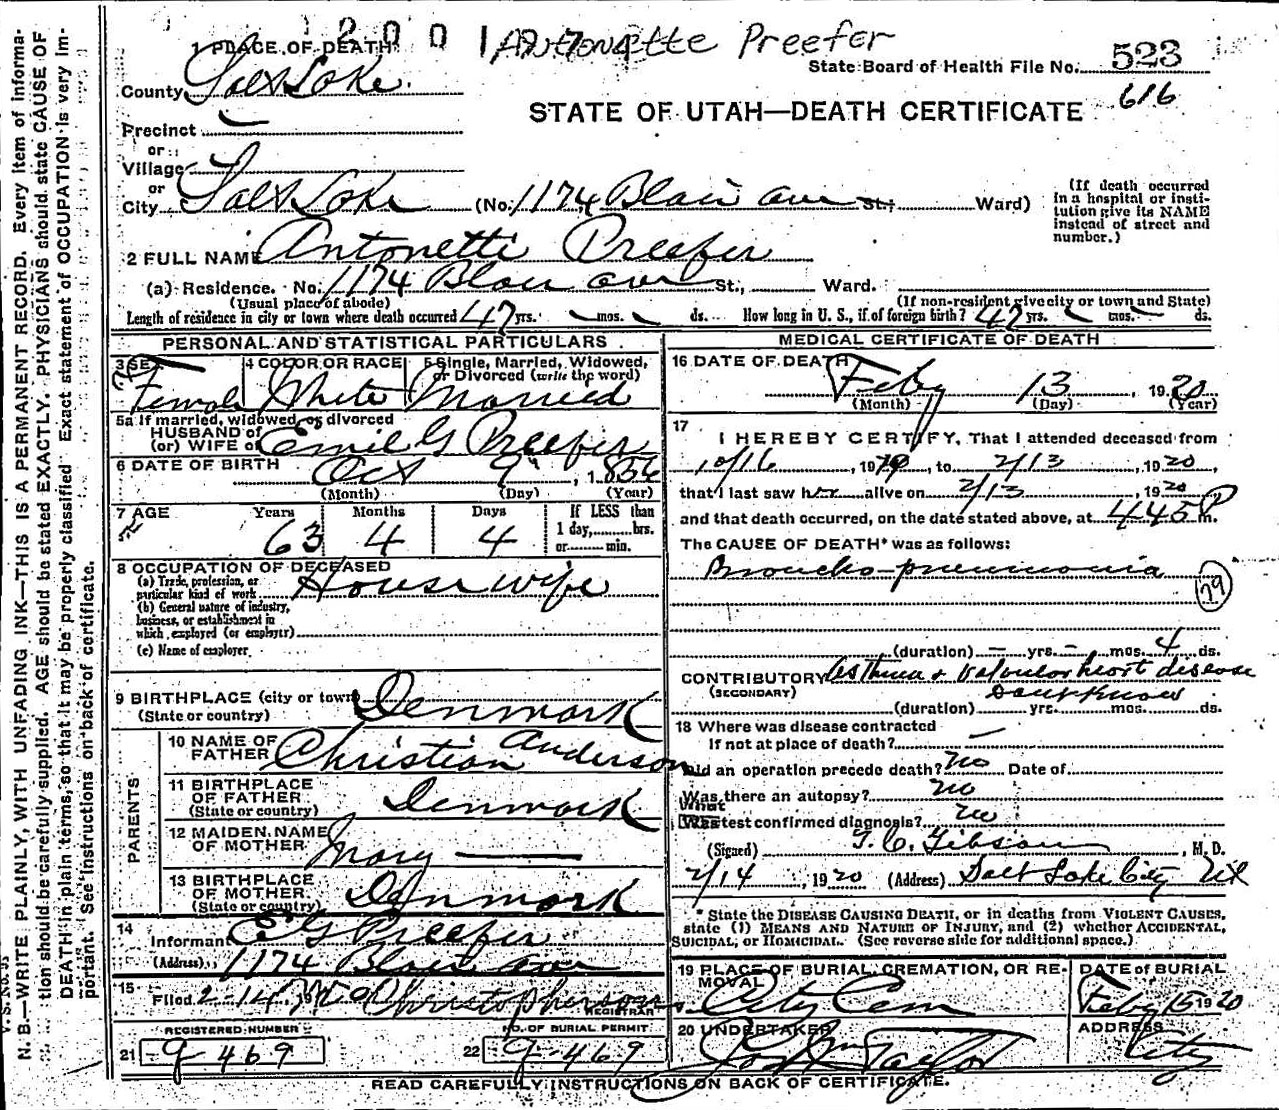 1 2 0 0 1 Antonette Preefer
1 PLACE OF DEATH
State Board of Health File No. 523
616
County Salt Lake
STATE OF UTAH—DEATH CERTIFICATE
Precinct
or
Village
or
City Salt Lake (No. 1174 Blair ave St.; Ward)
(If death occurred in a hospital or institution give its NAME instead of street and number.)
2 FULL NAME Antonette Preefer
(a) Residence. No. 1174 Blair ave St., Ward.
(Usual place of abode) (If non-resident give city or town and State)
Length of residence in city or town where death occurred 47 yrs. — mos. — ds. How long in U. S., if of foreign birth? 47 yrs. — mos. — ds.
PERSONAL AND STATISTICAL PARTICULARS
3 SEX Female
4 COLOR OR RACE White
5 Single, Married, Widowed, or Divorced (write the word) Married
5a If married, widowed, or divorced
HUSBAND of
(or) WIFE of Emil G Preefer
6 DATE OF BIRTH Oct 9", 1856
(Month) (Day) (Year)
7 AGE Years Months Days If LESS than
63 4 4 1 day,......hrs.
or......min.
8 OCCUPATION OF DECEASED
(a) Trade, profession, or particular kind of work House wife
(b) General nature of industry, business, or establishment in which, employed (or employer)
(c) Name of employer
9 BIRTHPLACE (city or town) Denmark
(State or country)
PARENTS
10 NAME OF FATHER Christian Anderson
11 BIRTHPLACE OF FATHER Denmark
(State or country)
12 MAIDEN NAME OF MOTHER Mary ——
13 BIRTHPLACE OF MOTHER Denmark
(State or country)
14 Informant E G Preefer
(Address) 1174 Blair ave
15 Filed 2-14 19 Christopherson
REGISTRAR
REGISTERED NUMBER NO. OF BURIAL PERMIT
21 9-469 22 9-469
MEDICAL CERTIFICATE OF DEATH
16 DATE OF DEATH Feby 13, 1920
(Month) (Day) (Year)
17 I HEREBY CERTIFY, That I attended deceased from
10/16, 1919, to 2/13, 1920,
that I last saw her alive on 2/13, 1920
and that death occurred, on the date stated above, at 4 45 P m.
The CAUSE OF DEATH* was as follows:
Broncho-pneumonia
79
(duration) — yrs. — mos. 4 ds.
CONTRIBUTORY Asthma & Valvular heart disease
(SECONDARY) Dont Know
(duration) yrs. mos. ds.
18 Where was disease contracted
If not at place of death? —
Did an operation precede death? no Date of
Was there an autopsy? no
What test confirmed diagnosis? no
(Signed) T. C. Gibson, M. D.
2/14, 1920 (Address) Salt Lake City Ut
* State the DISEASE CAUSING DEATH, or in deaths from VIOLENT CAUSES, state (1) MEANS AND NATURE OF INJURY, and (2) whether ACCIDENTAL, SUICIDAL, or HOMICIDAL. (See reverse side for additional space.)
19 PLACE OF BURIAL, CREMATION, OR REMOVAL City Cem
DATE of BURIAL Feby 15 1920
20 UNDERTAKER Jos Wm Taylor
ADDRESS City
READ CAREFULLY INSTRUCTIONS ON BACK OF CERTIFICATE.
V. S. No.
N. B.—WRITE PLAINLY, WITH UNFADING INK—THIS IS A PERMANENT RECORD. Every item of information should be carefully supplied. AGE should be stated EXACTLY. PHYSICIANS should state CAUSE OF DEATH in plain terms, so that it may be properly classified. Exact statement of OCCUPATION is very important. See instructions on back of certificate.